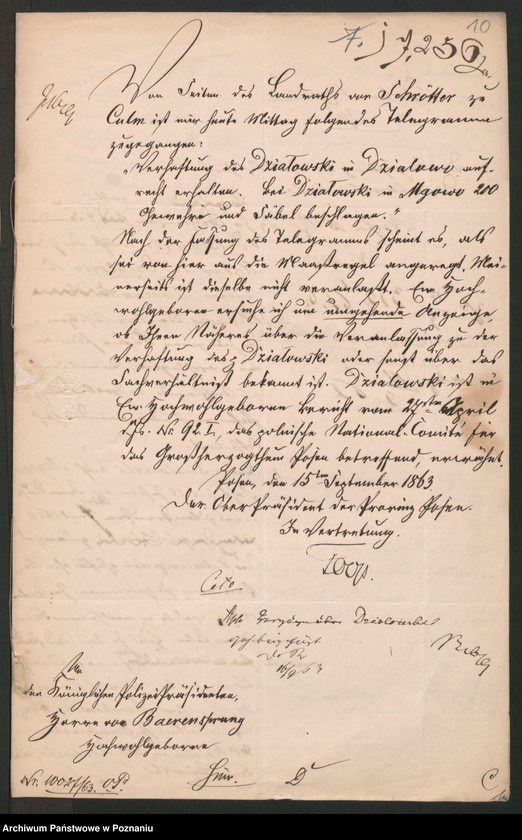 10
Von Seiten des Landraths von Schrötter zu
Culm ist mir heute Mittag folgendes Telegramm
zugegangen:
„Verhaftung des Dzialowski in Dzialowo auf-
recht erhalten. Bei Dzialowski in Mgowo 200
Gewehre und Säbel beschlagen."
Nach der Fassung des Telegramms scheint es, als
sei von hier aus die Maaßregel angeregt. Mei-
nerseits ist dieselbe nicht veranlaßt. Ew. Hoch-
wohlgeboren ersuche ich um umgehende Anzeige,
ob Ihnen Näheres über die Veranlassung zu der
Verhaftung des Dzialowski oder sonst über das
Sachverhältniß bekannt ist. Dzialowski ist in
Ew. Hochwohlgeboren Bericht vom April
d. Js. Nr. 92 I, das polnische National-Comité für
das Großherzogthum Posen betreffend, erwähnt.
Posen, den 15ten September 1863
Der Ober Präsident der Provinz Posen.
In Vertretung.
Cito
über Dzialowski
16/9 63
An
den Königlichen Polizei Präsidenten,
Herrn von Baerensprung
Hochwohlgeboren
Nr. 1002/63. OP.
hier.
Archiwum Państwowe w Poznaniu